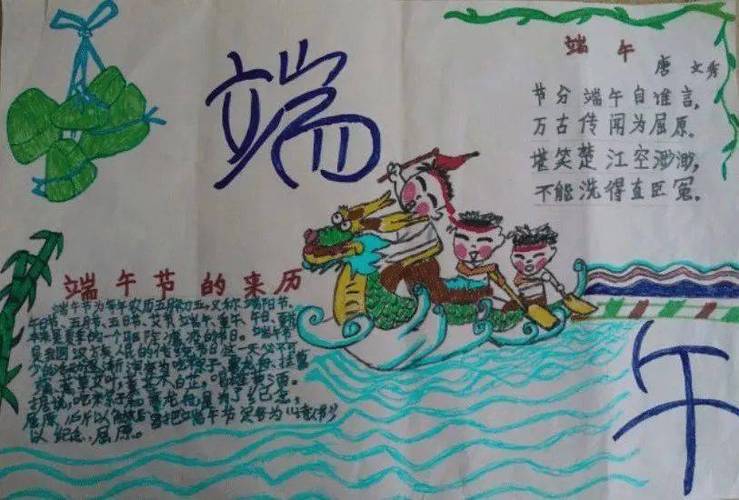 端
端午
唐 文秀
节分端午自谁言，
万古传闻为屈原。
堪笑楚江空渺渺，
不能洗得直臣冤。
端午节的来历
端午节为每年农历五月初五，又称端阳节，
午日节、五月节、五日节、艾节、端午、重午、午日、夏节，
本来是夏季的一个驱除瘟疫的节日。端午节
是我国汉族人民的传统节日这一天必不可
少的活动逐渐演变为吃粽子，赛龙舟，挂菖
蒲、蒿草、艾叶，薰苍术、白芷，喝雄黄酒。
据说，吃粽子和赛龙舟，是为了纪念
屈原，所以解放后曾把端午节定名为“诗人节”
以纪念屈原。
午